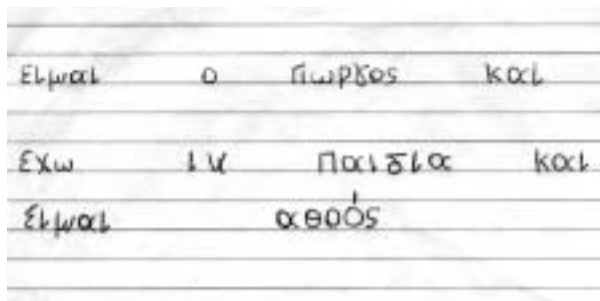 Είμαι ο Γιωργος και
Εχω ιν παιδια και
Είμαι αθοός